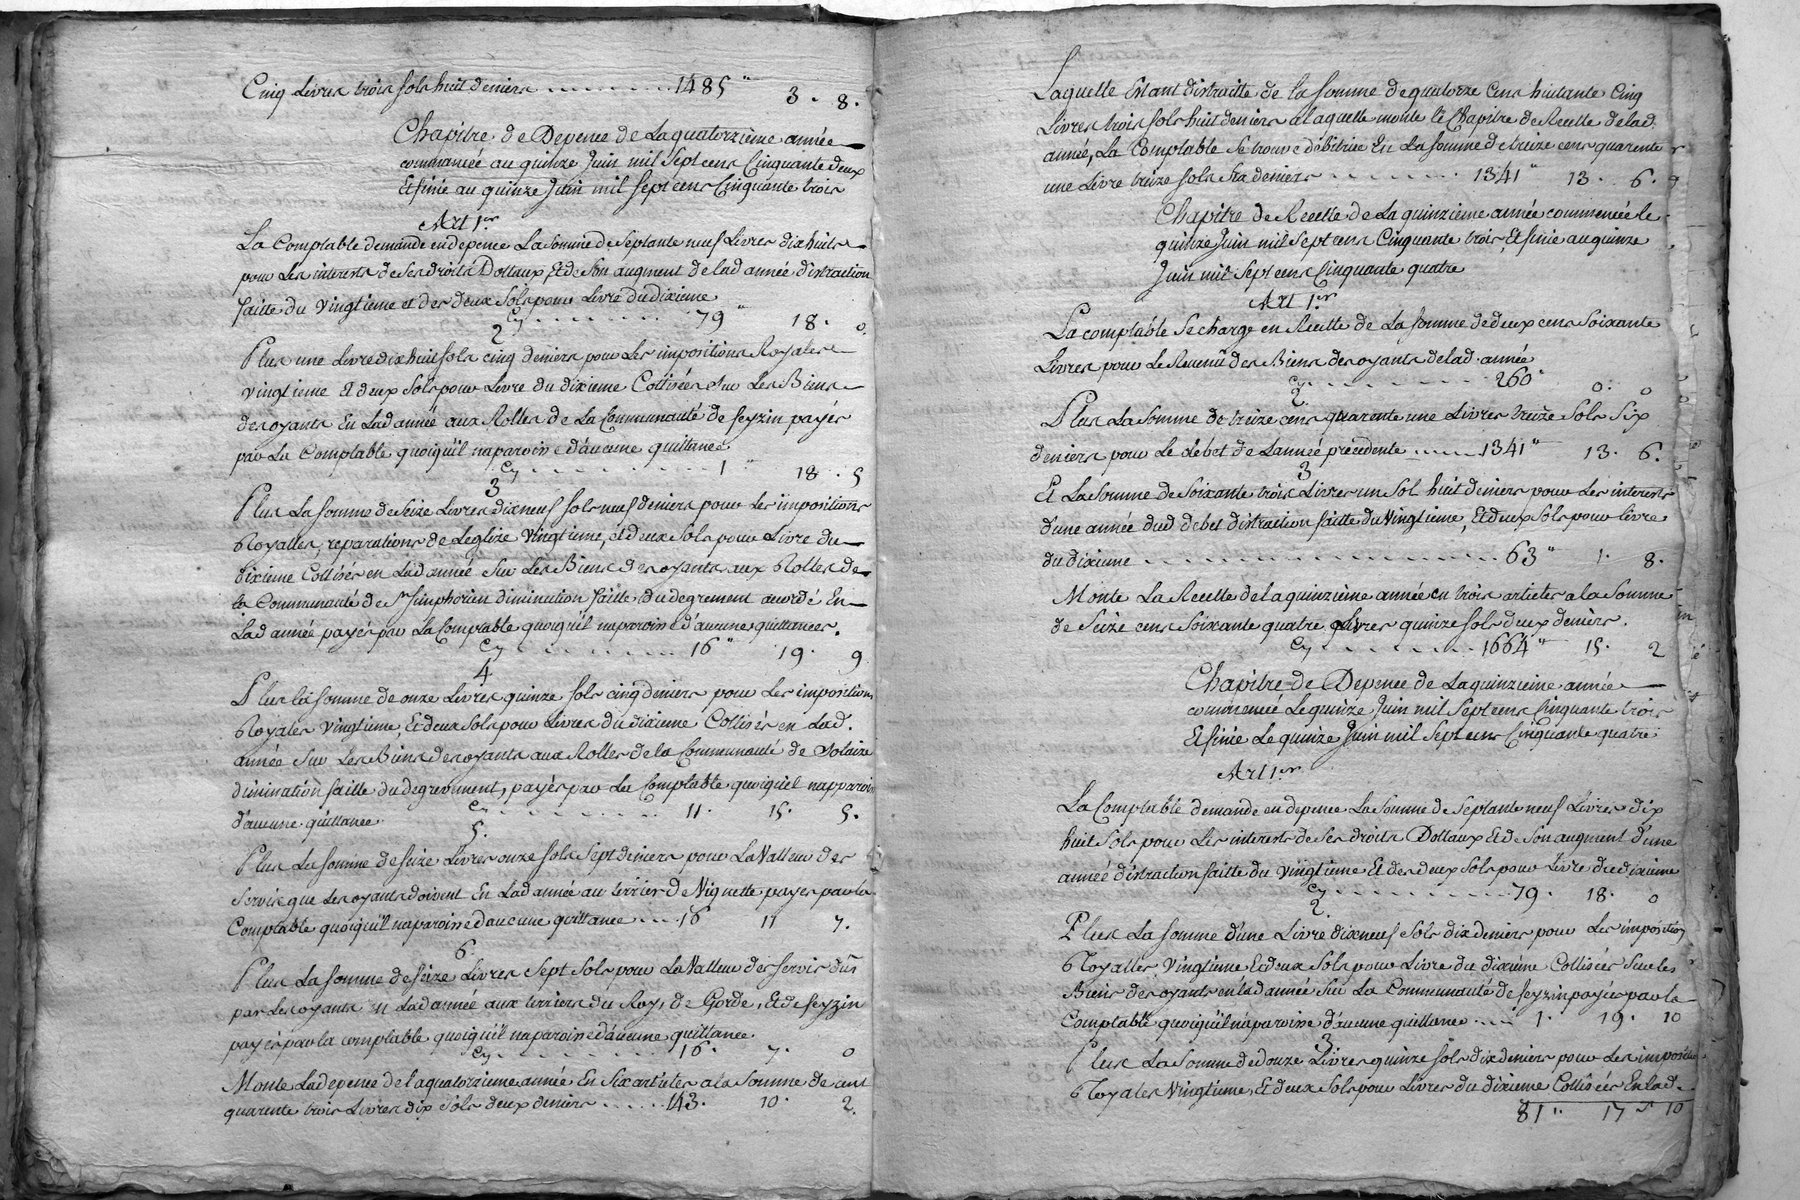 Cinq Livres trois sols huit deniers ........ 1485" 3. 8.
Chapitre de Depence de La quatorzieme année
commancée au quinze Juin mil Sept cens Cinquante deux
Et finie au quinze Juin mil Sept cens Cinquante trois
Art 1er
La Comptable demande en depence La Somme de Septante neuf Livres dixhuit s
pour Les interests de Ses droits Dottaux Et de Son augment de lad année distraction
faitte du vingtieme et des deux Sols pour Livre du dixieme
Cy ........ 79" 18. 0.
2
Plus une Livre dix huit sols cinq deniers pour Les impositions Royales
vingtieme Et deux Sols pour Livre du dixieme Cottisées sur Les Biens
des oyants En Lad année aux Rolles de La Communauté de feyzin payés
par La Comptable quoiquil naparoisse d'aucune quittance
Cy ........ 1" 18. 5
3
Plus La Somme de Seize Livres dixneuf sols neuf deniers pour Les impositions
Royalles, reparations de Leglize vingtieme, et deux Sols pour Livre du
dixieme Cottisés en Lad année Sur Les Biens des oyants aux Rolles de
la Communauté de St Simphorien diminution faitte du degrement acordé En
Lad année payés par La Comptable quoiquil naparoisse d'aucune quittances.
Cy ........ 16" 19. 9
4
Plus la Somme de onze Livres quinze sols cinq deniers pour Les impositions
Royales vingtieme, Et deux Sols pour Livres du dixieme Cottisés en Lad.
année Sur Les Biens des oyants aux Rolles de la Communauté de Solaize
diminution faitte du degrevement, payés par La Comptable quoiquil napparoisse
d'aucune quittance Cy ........ 11. 15. 5.
5.
Plus La Somme de Seize Livres onze sols Sept deniers pour La Valleur des
Servis que Les oyants doivent En Lad année au terrier de Vignette payés par la
Comptable quoiquil naparoisse d'aucune quittance .... 16 11 7.
6.
Plus La Somme de Seize Livres Sept Sols pour La Valleur des Servis dûs
par Les oyants En Lad année aux terriers du Roy, de Gorde, Et de feyzin
payés par la comptable quoiquil naparoisse d'aucune quittance
Cy ........ 16. 7. 0
Monte La depence de la quatorzieme année En Six articles a la Somme de cent
quarente trois Livres dix Sols deux deniers ...... 143. 10. 2.
Laquelle Estant distraitte de la Somme de quatorze Cens huitante Cinq
Livres trois sols huit deniers a laquelle monte le Chapitre de Recette de lad.
année, La Comptable Se trouve débitrice En La Somme de treize cens quarente
une Livre treize sols Six deniers ........ 1341" 13. 6.
Chapitre de Recette de La quinzieme année commencée le
quinze Juin mil Sept cens Cinquante trois, Et finie au quinze
Juin mil Sept cens Cinquante quatre
Art 1er
La comptable Se charge en Recette de La Somme de deux cens Soixante
Livres pour Le Revenû des Biens des oyants de lad. année
Cy ........ 260" 0. 0
2.
Plus La Somme de treize cens quarente une Livres treize Sols Six
deniers pour Le débet de Lannée précédente ...... 1341" 13. 6.
3
Et La Somme de Soixante trois Livres un Sol huit deniers pour Les interests
d'une année dud debet distraction faitte du Vingtieme, Et deux Sols pour livre
du dixieme ........ 63" 1. 8.
Monte La Recette de la quinzieme année en trois articles a la Somme
de Seize cens Soixante quatre Livres quinze sols deux deniers.
Cy ........ 1664" 15. 2
Chapitre de Depence de La quinzieme année
commencée Le quinze Juin mil Sept cens Cinquante trois
Et finie Le quinze Juin mil Sept cens Cinquante quatre
Art 1er
La Comptable demande en depence La Somme de Septante neuf Livres dix
huit Sols pour Les interests de Ses droits Dottaux Et de Son augment d'une
année distraction faitte du vingtieme Et des deux Sols pour Livre du dixieme
Cy ........ 79. 18. 0
2.
Plus La Somme d'une Livre dixneuf Sols dix deniers pour Les imposition
Royalles, Vingtieme Et deux Sols pour Livre du dixieme Cottisées Sur les
Biens des oyants en lad année Sur La Communauté de feyzin payés par la
Comptable quoiquil naparoisse d'aucune quittance .... 1. 19. 10
3
Plus La Somme de douze Livres quinze sols dix deniers pour Les impositions
Royales Vingtieme, Et deux Sols pour Livres du dixieme Cottisées En lad.
81" 17 10